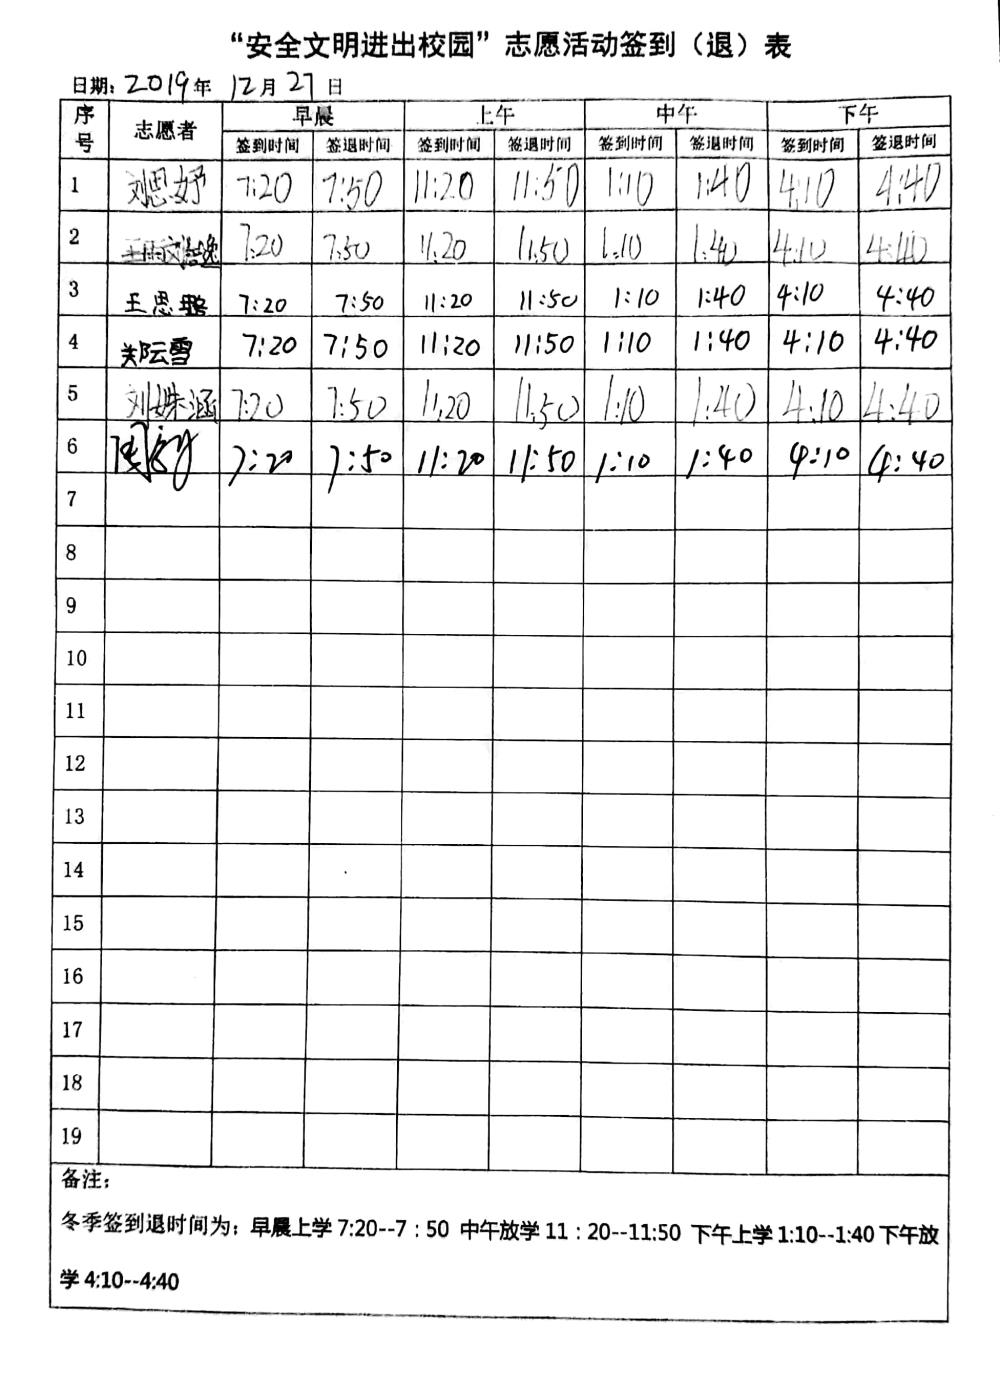 “安全文明进出校园”志愿活动签到（退）表
日期：2019年 12月 27日
序号 志愿者 早晨 上午 中午 下午
签到时间 签退时间 签到时间 签退时间 签到时间 签退时间 签到时间 签退时间
1 刘思妤 7:20 7:50 11:20 11:50 1:10 1:40 4:10 4:40
2 刘浩逸 7:20 7:50 11:20 11:50 1:10 1:40 4:10 4:40
3 王思 7:20 7:50 11:20 11:50 1:10 1:40 4:10 4:40
4 郑云雪 7:20 7:50 11:20 11:50 1:10 1:40 4:10 4:40
5 刘姝涵 7:20 7:50 11:20 11:50 1:10 1:40 4:10 4:40
6 7:20 7:50 11:20 11:50 1:10 1:40 4:10 4:40
7
8
9
10
11
12
13
14
15
16
17
18
19
备注：
冬季签到退时间为：早晨上学7:20--7：50 中午放学11：20--11:50 下午上学1:10--1:40下午放
学4:10--4:40